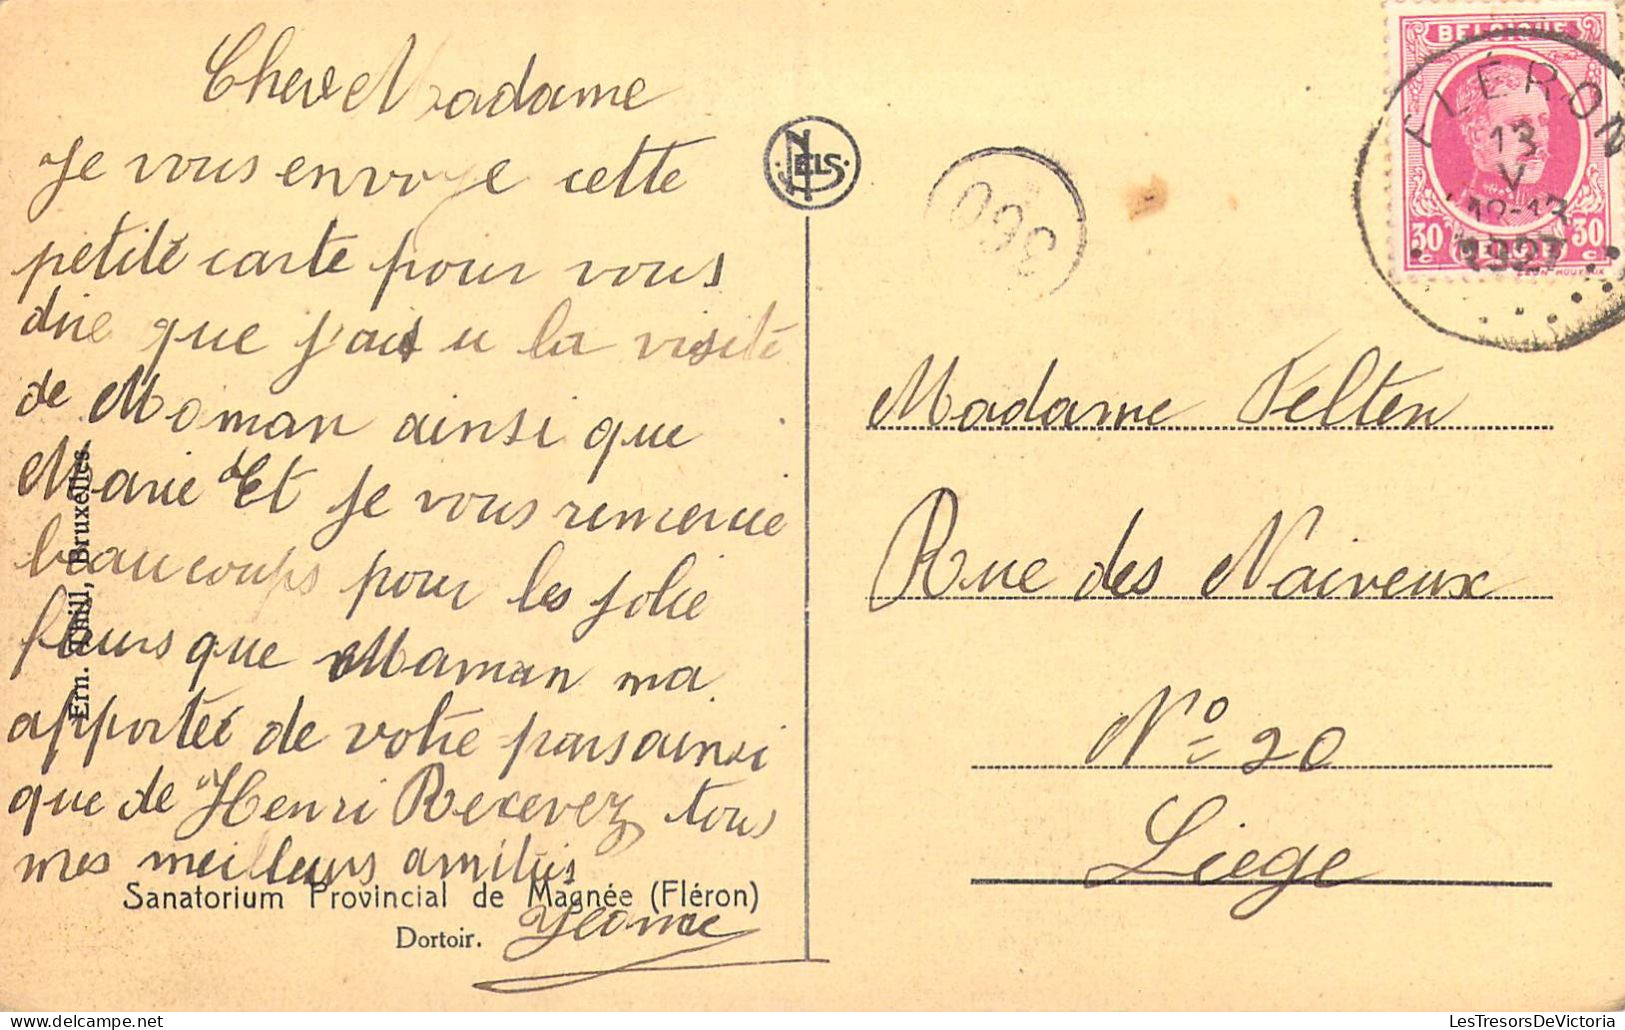 Chere Madame
Je vous envoye cette
petite carte pour vous
dire que j'ais u la visite
de Moman ainsi que
Marie Et je vous remercie
beaucoups pour les jolie
fleurs que Maman ma
apporteé de votre pars ainsi
que de Henri Recevez tous
mes meilleurs amitiés
Yvonne
Ern. Thill, Bruxelles.
Sanatorium Provincial de Magnée (Fléron)
Dortoir.
NELS
360
BELGIQUE
30 c 30 c
BELGIË
FLÉRON
13
V
12-13
1927
Madame Felten
Rue des Naiveux
N° 20
Liege
LesTresorsDeVictoria